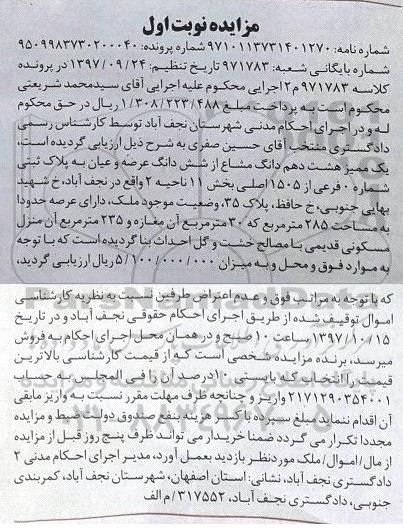 مزایده نوبت اول
شماره نامه: ۹۷۱۰۱۱۳۷۳۱۴۰۱۲۷۰ شماره پرونده: ۹۵۰۹۹۸۳۷۳۰۲۰۰۰۴۰
شماره بایگانی شعبه: ۹۷۱۷۸۳ تاریخ تنظیم: ۱۳۹۷/۰۹/۲۴ در پرونده
کلاسه ۹۷۱۷۸۳ م ۲ اجرایی محکوم علیه اجرایی آقای سیدمحمد شریعتی
محکوم است به پرداخت مبلغ ۱/۳۰۸/۲۲۳/۴۸۸ ریال در حق محکوم
له و در اجرای احکام مدنی شهرستان نجف آباد توسط کارشناس رسمی
دادگستری منتخب آقای حسین صفری به شرح ذیل ارزیابی گردیده است،
یک ممیز هشت دهم دانگ مشاع از شش دانگ عرصه و عیان به پلاک ثبتی
شماره ۰ فرعی از ۱۵۰۵ اصلی بخش ۱۱ ناحیه ۲ واقع در نجف آباد، خ شهید
بهایی جنوبی، خ حافظ، پلاک ۳۵، وضعیت موجود ملک، دارای عرصه حدودا
به مساحت ۲۸۵ مترمربع که ۳۰ مترمربع آن مغازه و ۲۳۵ مترمربع آن منزل
مسکونی قدیمی با مصالح خشت و گل احداث بنا گردیده است که با توجه
به موارد فوق و محل و به میزان ۵/۱۰۰/۰۰۰/۰۰۰ ریال ارزیابی گردید،
که با توجه به مراتب فوق و عدم اعتراض طرفین نسبت به نظریه کارشناسی
اموال توقیف شده از طریق اجرای احکام حقوقی نجف آباد و در تاریخ
۱۳۹۷/۱۰/۱۵ ساعت ۱۰ صبح و در همان محل اجرای احکام به فروش
میرسد، برنده مزایده شخصی است که از قیمت کارشناسی بالاترین
قیمت را انتخاب که بایستی ۱۰ درصد آن را فی المجلس به حساب
۲۱۷۱۲۹۰۳۵۴۰۰۱ واریز و چنانچه ظرف مهلت مقرر نسبت به واریز مابقی
آن اقدام ننماید مبلغ سپرده با کسر هزینه بنفع صندوق دولت ضبط و مزایده
مجددا تکرار می گردد ضمنا خریدار می تواند ظرف پنج روز قبل از مزایده
از مال / اموال / ملک موردنظر بازدید بعمل آورد، مدیر اجرای احکام مدنی ۲
دادگستری نجف آباد، نشانی: استان اصفهان، شهرستان نجف آباد، کمربندی
جنوبی، دادگستری نجف آباد، ۳۱۷۵۵۲/م الف